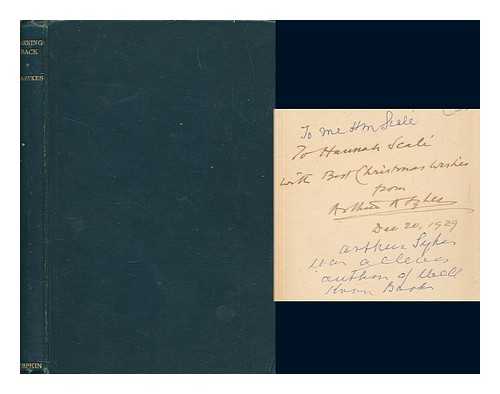 BACK
SYKES
To me HM Scale
To Hannah Scale
with Best Christmas Wishes
from
Arthur A Sykes
Dec 20, 1929
Arthur Sykes
was a clever
author of well
known Books